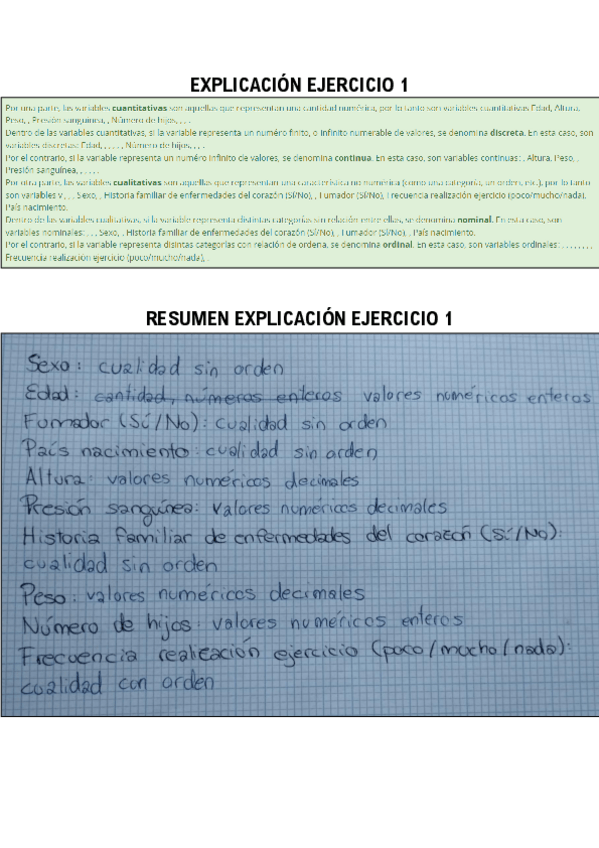 EXPLICACIÓN EJERCICIO 1
Por una parte, las variables cuantitativas son aquellas que representan una cantidad numérica, por lo tanto son variables cuantitativas Edad, Altura,
Peso, , Presión sanguínea, , Número de hijos, , , .
Dentro de las variables cuantitativas, si la variable representa un numéro finito, o infinito numerable de valores, se denomina discreta. En esta caso, son
variables discretas: Edad, , , , , , Número de hijos, , , .
Por el contrario, si la variable representa un numéro infinito de valores, se denomina continua. En esta caso, son variables continuas: , Altura, Peso, ,
Presión sanguínea, , , , , .
Por otra parte, las variables cualitativas son aquellas que representan una característica no numérica (como una categoría, un orden, etc.), por lo tanto
son variables v , , , Sexo, , Historia familiar de enfermedades del corazón (Sí/No), , Fumador (Sí/No), Frecuencia realización ejercicio (poco/mucho/nada),
País nacimiento.
Dentro de las variables cualitativas, si la variable representa distintas categorías sin relación entre ellas, se denomina nominal. En esta caso, son
variables nominales: , , , Sexo, , Historia familiar de enfermedades del corazón (Sí/No), , Fumador (Sí/No), , País nacimiento.
Por el contrario, si la variable representa disintas categorías con relación de ordena, se denomina ordinal. En este caso, son variables ordinales: , , , , , , , , ,
Frecuencia realización ejercicio (poco/mucho/nada), .
RESUMEN EXPLICACIÓN EJERCICIO 1
Sexo: cualidad sin orden
Edad: cantidad, números enteros valores numéricos enteros
Fumador (Sí/No): cualidad sin orden
País nacimiento: cualidad sin orden
Altura: valores numéricos decimales
Presión sanguínea: valores numéricos decimales
Historia familiar de enfermedades del corazón (Sí/No):
cualidad sin orden
Peso: valores numéricos decimales
Número de hijos: valores numéricos enteros
Frecuencia realización ejercicio (poco/mucho/nada):
cualidad con orden